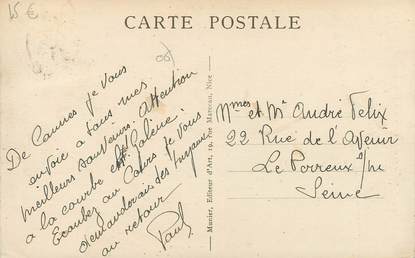 15 €
CARTE POSTALE
06
De Cannes je vous
envoie a tous mes
meilleurs souvenirs. Attention
a la courbe et Galène!
Ecoutez au Cours je vous
demanderai des
au retour
Paul
Munier, Editeur d'Art, 19, rue Marceau, Nice
Mmes et Mr André Felix
22 Rue de l'Avenir
Le Perreux s/m
Seine